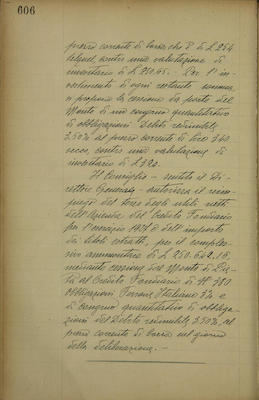 606
prezzo corrente di borsa che è di L. 254
contro una valutazione di
inventario di L. 210.65. Per l'in-
vestimento di ogni restante somma,
si propone la cessione da parte del
Monte di un congruo quantitativo
di obbligazioni Debito redimibile
3.50% al prezzo corrente di lire 340
secco, contro una valutazione di
inventario di L. 390.
Il Consiglio - sentito il Di-
rettore Generale - autorizza il reim-
piego del terzo degli utili netti
dell'Azienda del Credito Fondiario
per l'esercizio e dell'importo
dei titoli estratti, per il comples-
sivo ammontare di L. 250.602.18,
mediante cessione dal Monte di Pie-
tà al Credito Fondiario di N° 980
obbligazioni Ferrovie Italiane 3% e
di congruo quantitativo di obbliga-
zioni del Debito redimibile 3.50%, al
prezzo corrente di borsa nel giorno
della deliberazione. -